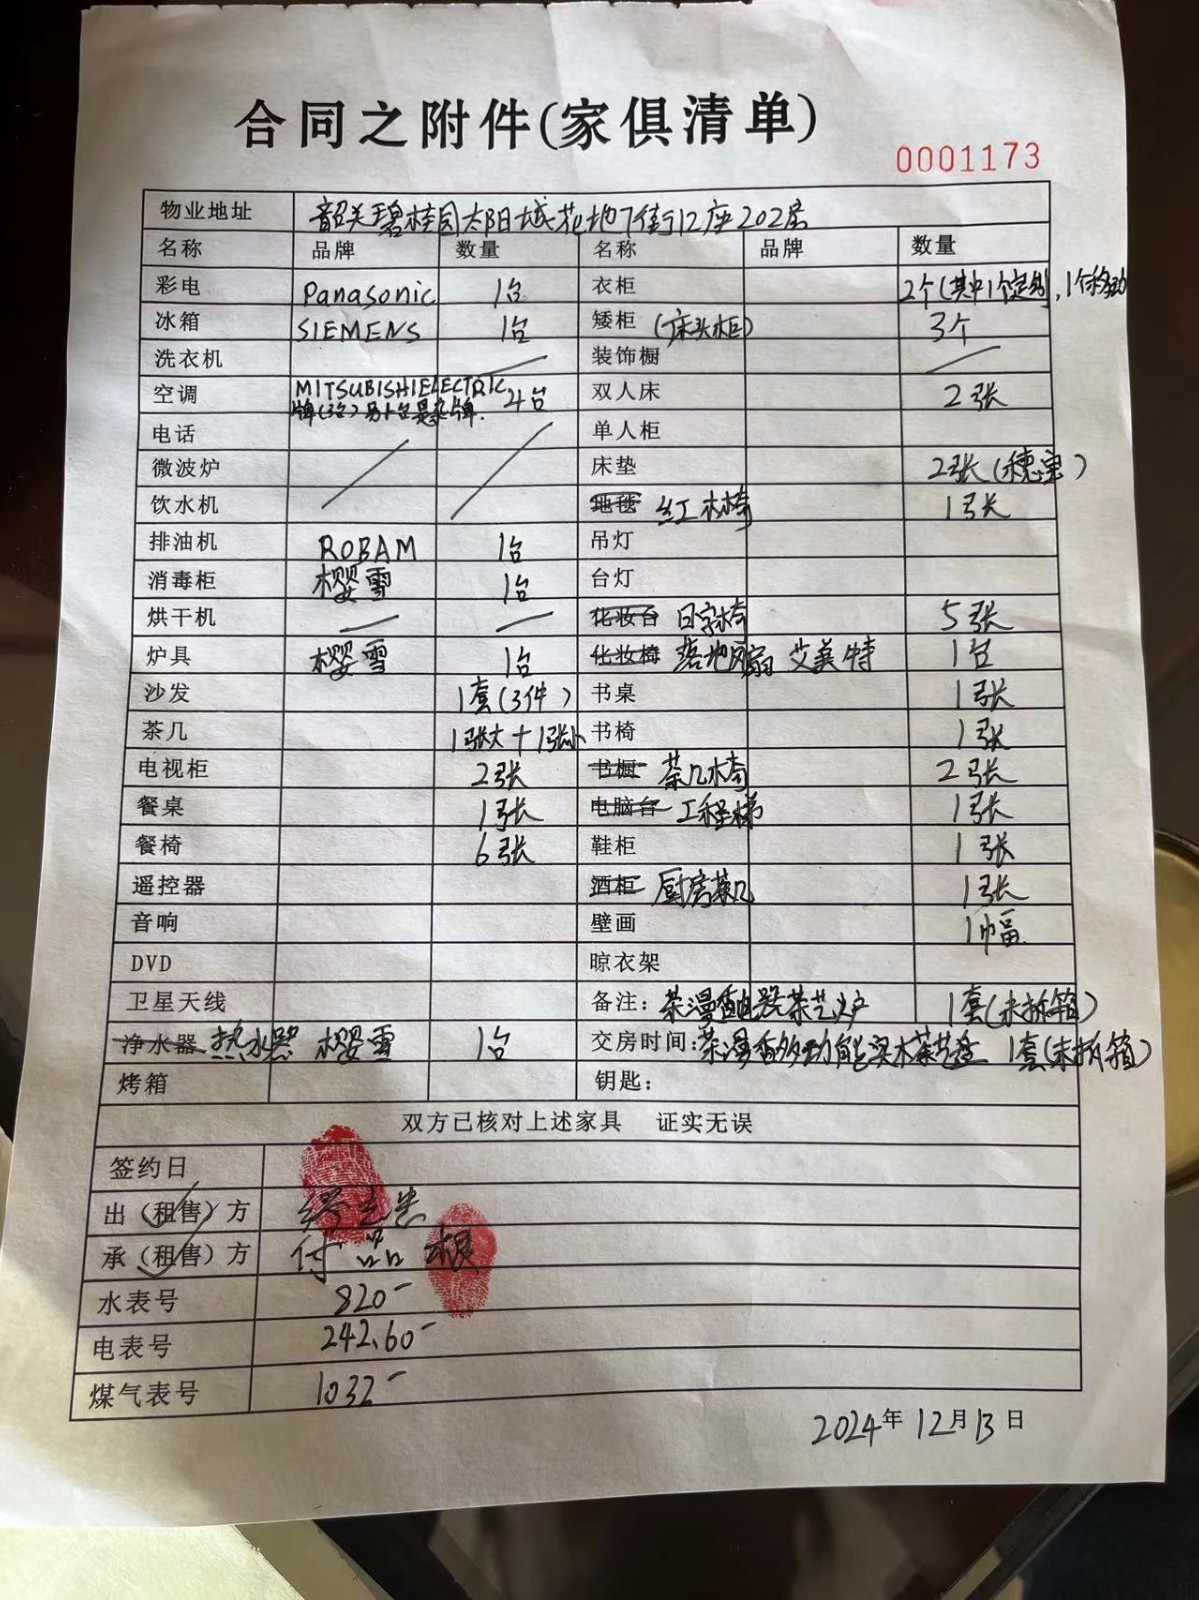 合同之附件(家俱清单)
0001173
物业地址 韶关碧桂园太阳城花地7街12座202房
名称 品牌 数量 名称 品牌 数量
彩电 Panasonic 1台 衣柜 2个(其中1个定制,1个移动
冰箱 SIEMENS 1台 矮柜 (床头柜) 3个
洗衣机 装饰橱
空调 MITSUBISHI ELECTRIC 4台 双人床 2张
牌(3台)另1台是杂牌.
电话 单人柜
微波炉 床垫 2张(穗宝)
饮水机 地毯 红木椅 1张
排油机 ROBAM 1台 吊灯
消毒柜 樱雪 1台 台灯
烘干机 化妆台 日字椅 5张
炉具 樱雪 1台 化妆椅 落地风扇 艾美特 1台
沙发 1套(3件) 书桌 1张
茶几 1张大+1张小 书椅 1张
电视柜 2张 书橱 茶几椅 2张
餐桌 1张 电脑台 工程梯 1张
餐椅 6张 鞋柜 1张
遥控器 酒柜 厨房茶几 1张
音响 壁画 1幅
DVD 晾衣架
卫星天线 备注: 茶漫香电器茶艺炉 1套(未拆箱)
净水器 热水器 樱雪 1台 交房时间: 茶漫香多功能实木茶艺座 1套(未拆箱)
烤箱 钥匙:
双方已核对上述家具 证实无误
签约日
出(租售)方
承(租售)方 付品根
水表号 820-
电表号 242.60-
煤气表号 1032-
2024年12月13日